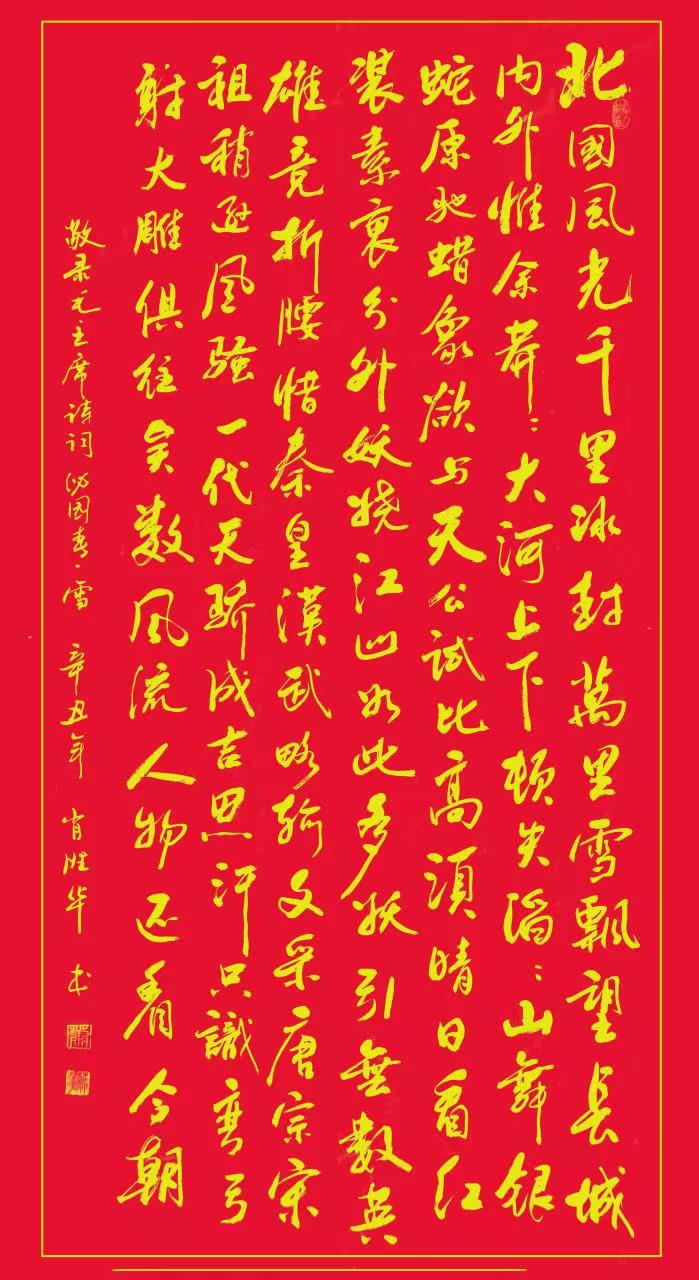 北國風光千里冰封萬里雪飄望長城
内外惟余莽々大河上下顿失滔々山舞银
蛇原驰蜡象欲与天公试比高須晴日看红
装素裹分外妖娆江山如此多娇引無数英
雄竞折腰惜秦皇漢武略输文采唐宗宋
祖稍逊风骚一代天骄成吉思汗只識弯弓
射大雕俱往矣数风流人物还看今朝
敬录毛主席诗词沁园春·雪 辛丑年 肖胜华 书